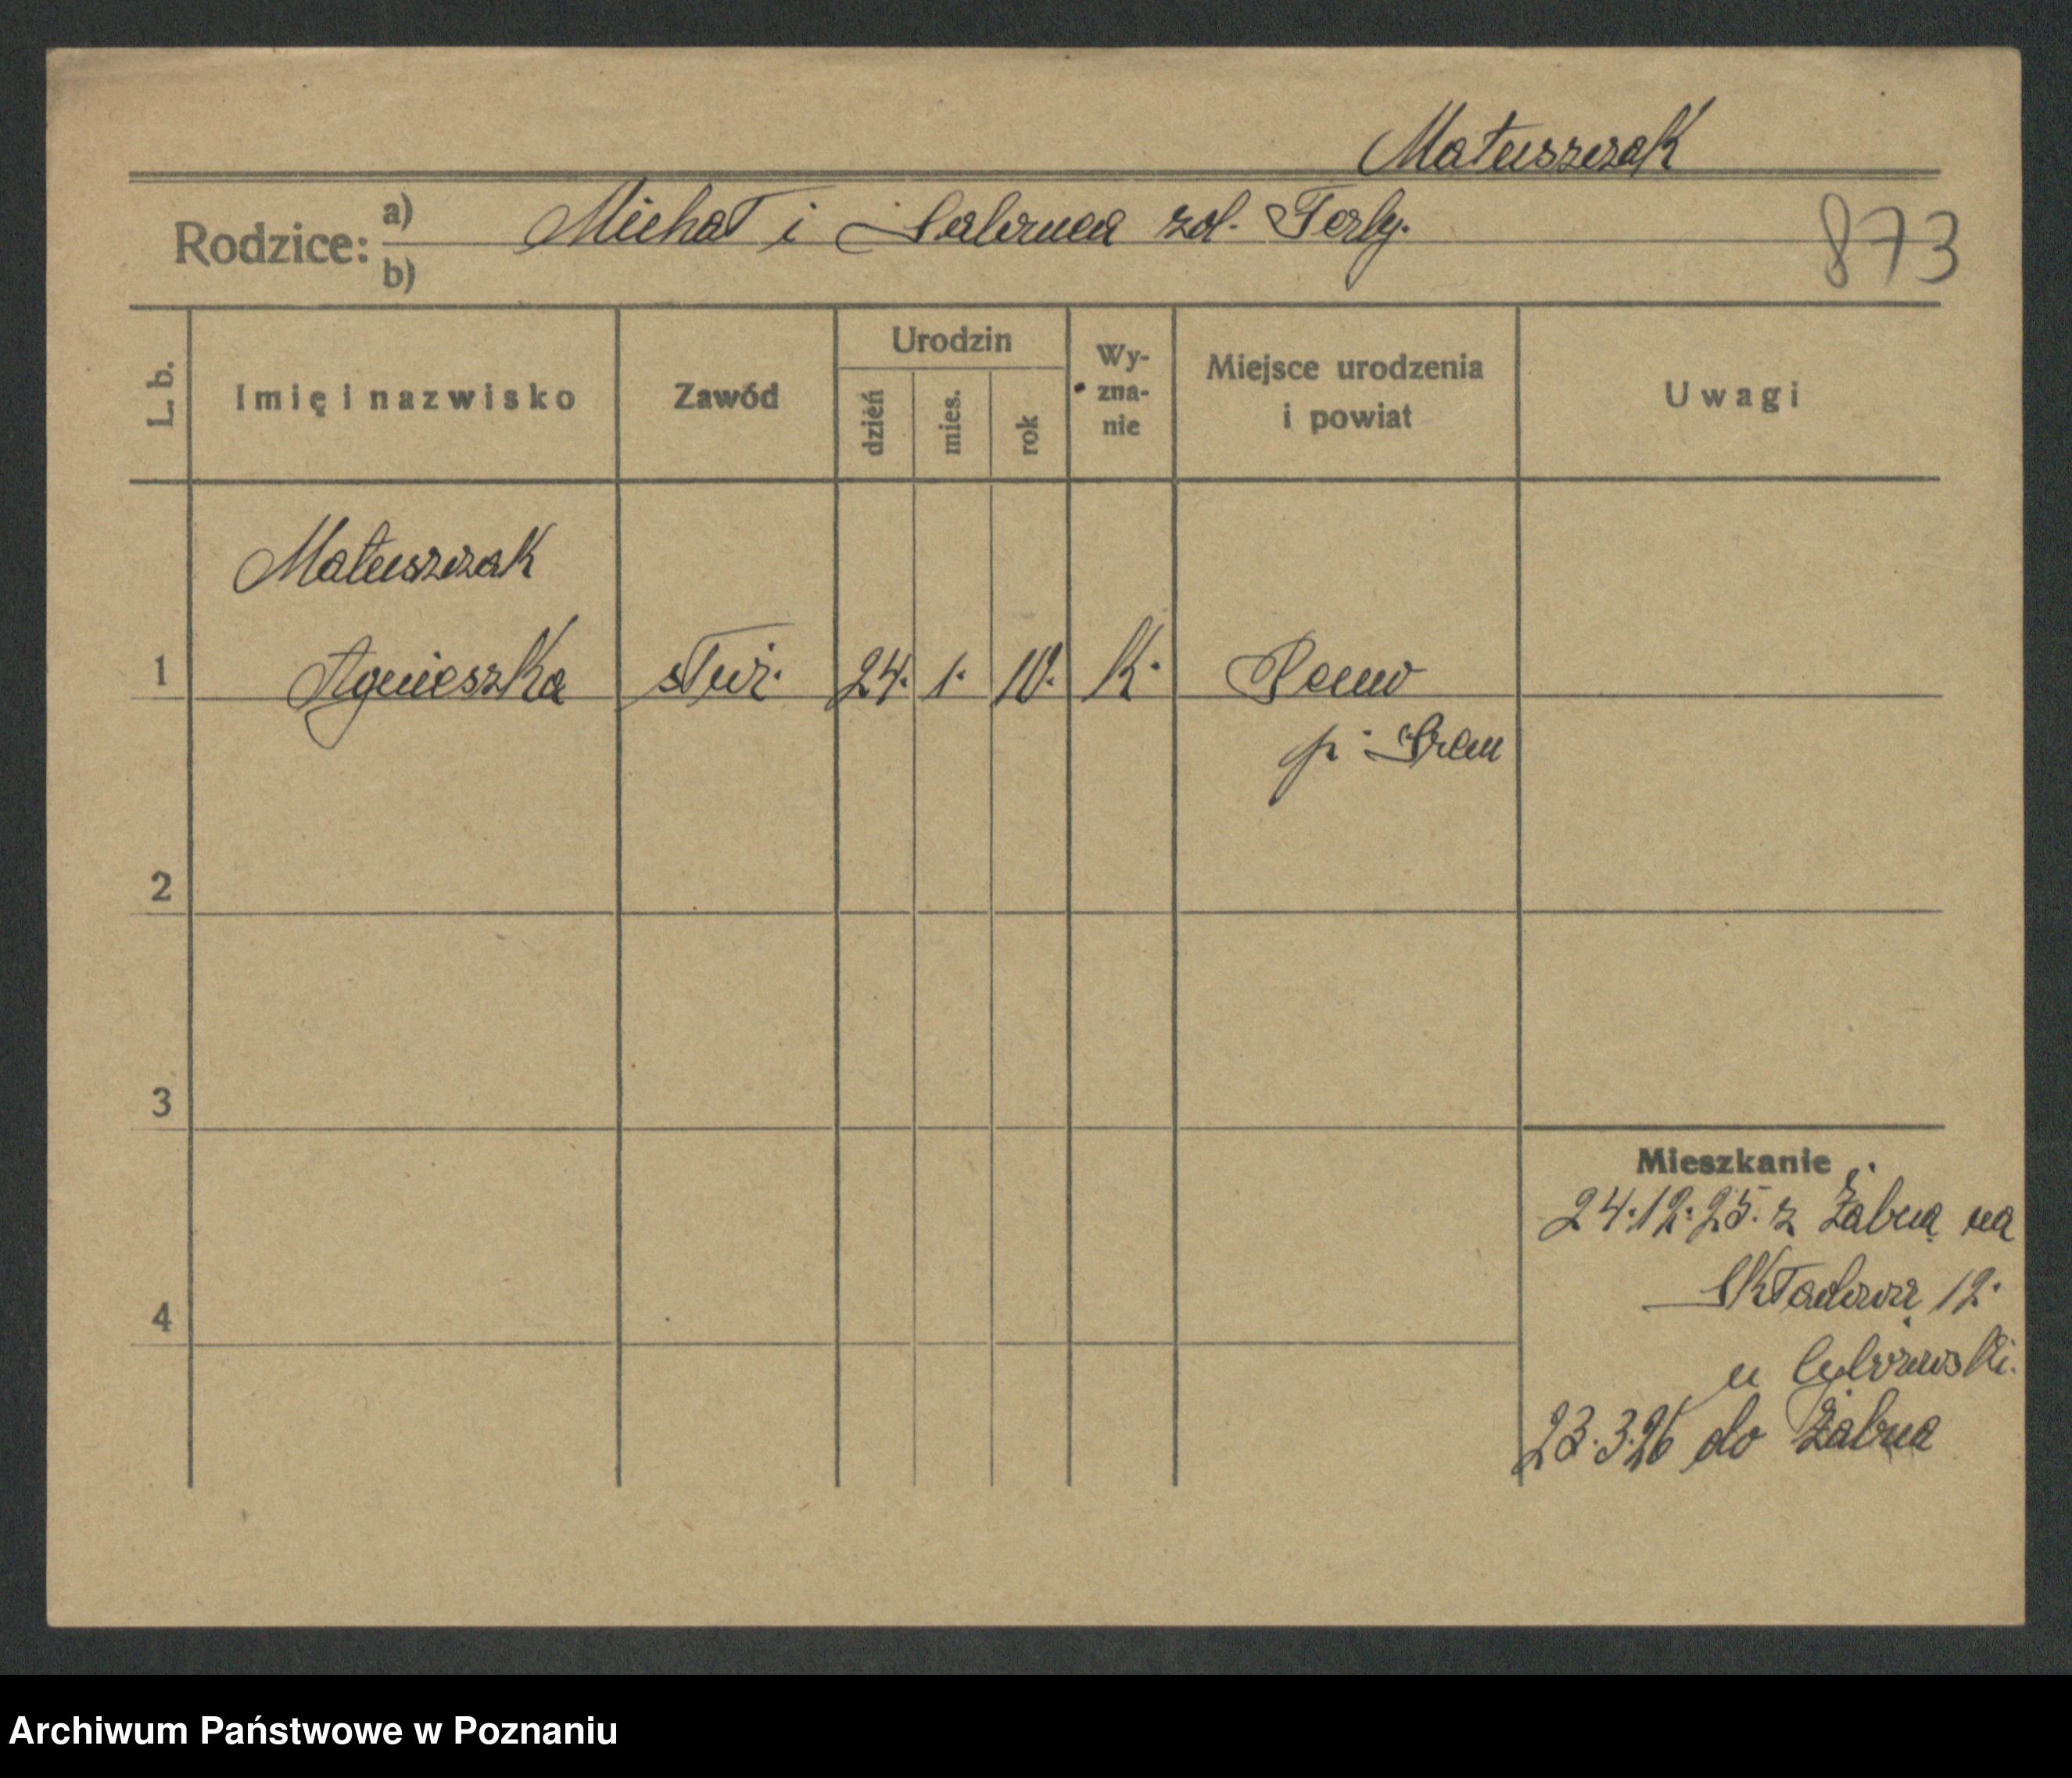 Matuszczak
Rodzice: a) Michał i zd. Ferly.
b)
873
L. b.
Imię i nazwisko
Zawód
Urodzin
dzień
mies.
rok
Wy-
zna-
nie
Miejsce urodzenia
i powiat
Uwagi
Matuszczak
1 Agnieszka służ. 24. 1. 10. K.
p. Śrem
2
3
4
Mieszkanie
24.12.25. z Żabna na
Składową 12.
u
23.3.26 do Żabna
Archiwum Państwowe w Poznaniu